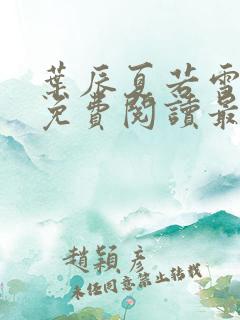 葉辰夏若雪
免費閱讀最
趙穎彥
未經同意禁止轉載